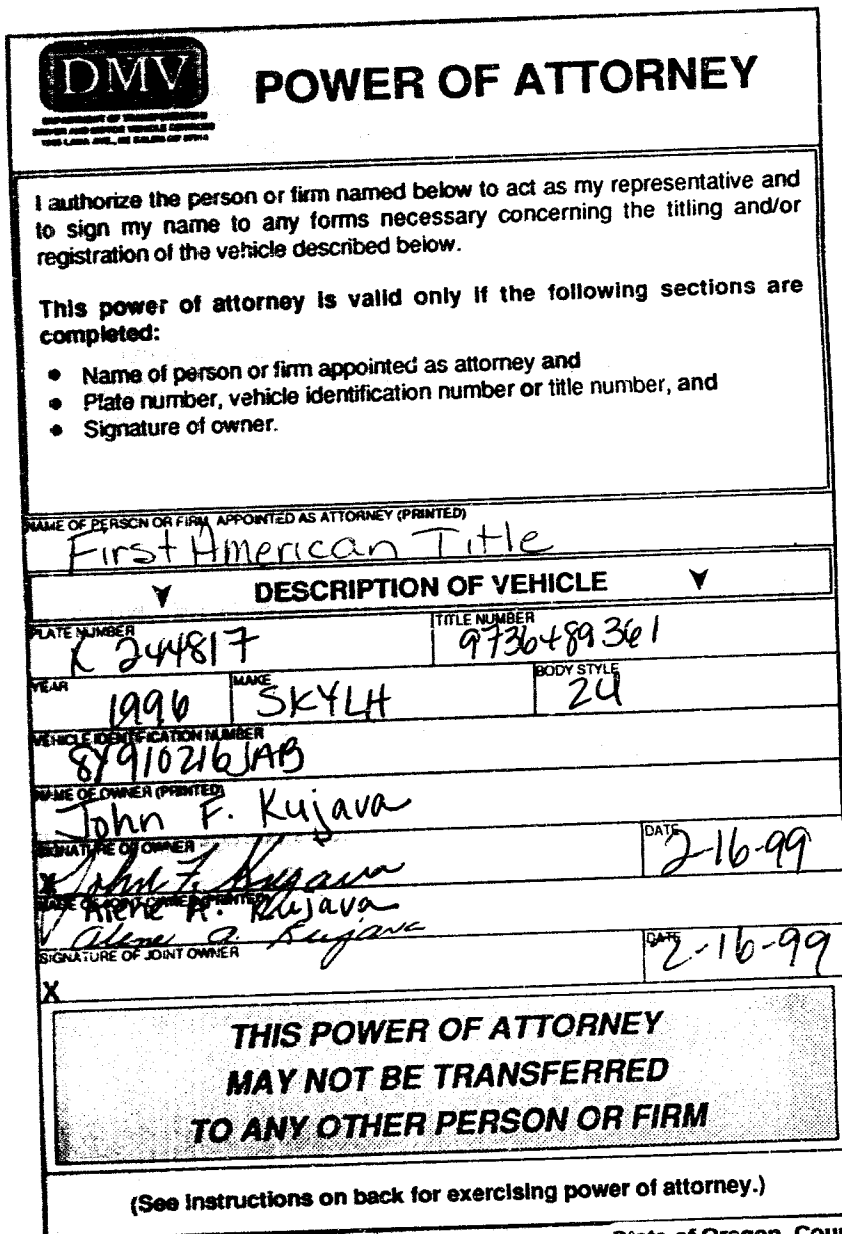 DMV
DEPARTMENT OF TRANSPORTATION
DRIVER AND MOTOR VEHICLE SERVICES
1905 LANA AVE., NE SALEM OR 97314
POWER OF ATTORNEY
I authorize the person or firm named below to act as my representative and
to sign my name to any forms necessary concerning the titling and/or
registration of the vehicle described below.
This power of attorney is valid only if the following sections are
completed:
• Name of person or firm appointed as attorney and
• Plate number, vehicle identification number or title number, and
• Signature of owner.
NAME OF PERSON OR FIRM APPOINTED AS ATTORNEY (PRINTED)
First American Title
DESCRIPTION OF VEHICLE
PLATE NUMBER TITLE NUMBER
X 244817 9736489361
YEAR MAKE BODY STYLE
1996 SKYLH 24
VEHICLE IDENTIFICATION NUMBER
8Y910216JAB
NAME OF OWNER (PRINTED)
John F. Kujava
SIGNATURE OF OWNER DATE
X John F. Kujava 2-16-99
NAME OF JOINT OWNER (PRINTED)
Alene A. Kujava
Alene A. Kujava
SIGNATURE OF JOINT OWNER DATE
2-16-99
X
THIS POWER OF ATTORNEY
MAY NOT BE TRANSFERRED
TO ANY OTHER PERSON OR FIRM
(See instructions on back for exercising power of attorney.)
State of Oregon, Cou